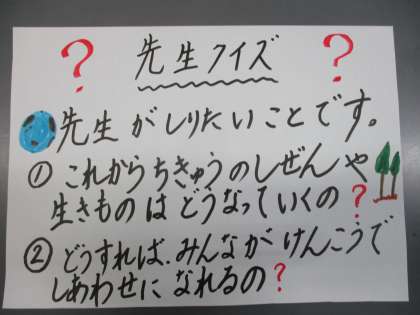 ? 先生クイズ ?
先生がしりたいことです。
① これからちきゅうのしぜんや
生きものはどうなっていくの?
② どうすれば、みんながけんこうで
しあわせになれるの?